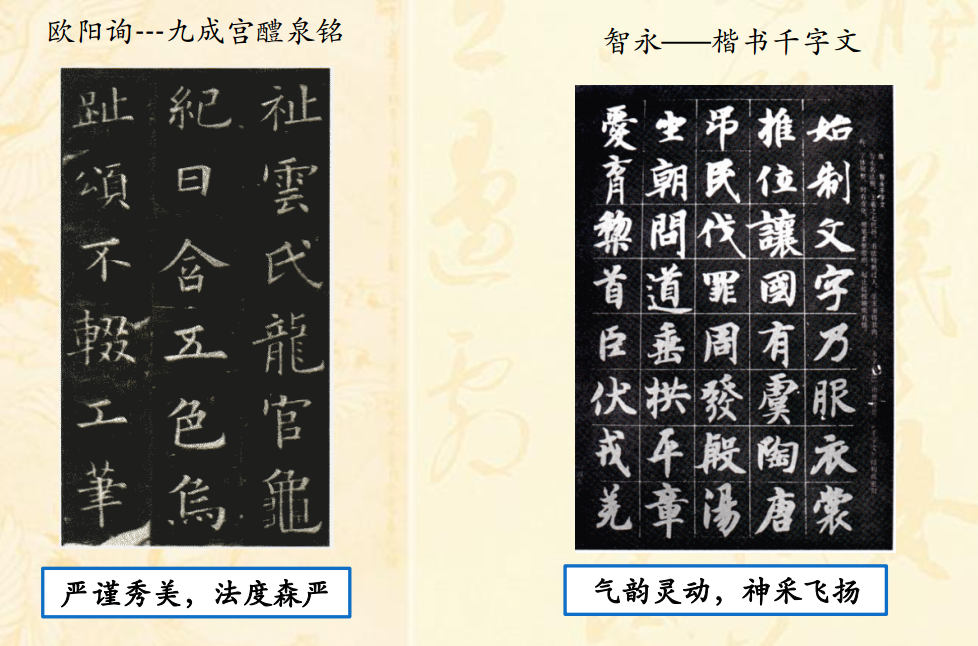 欧阳询---九成宫醴泉铭
祉雲氏龍官龜
紀日含五色烏
趾頌不輟工筆
严谨秀美，法度森严
智永——楷书千字文
智永千字文
始制文字乃服衣裳
推位讓國有虞陶唐
吊民伐罪周發殷湯
坐朝問道垂拱平章
愛育黎首臣伏戎羌
气韵灵动，神采飞扬